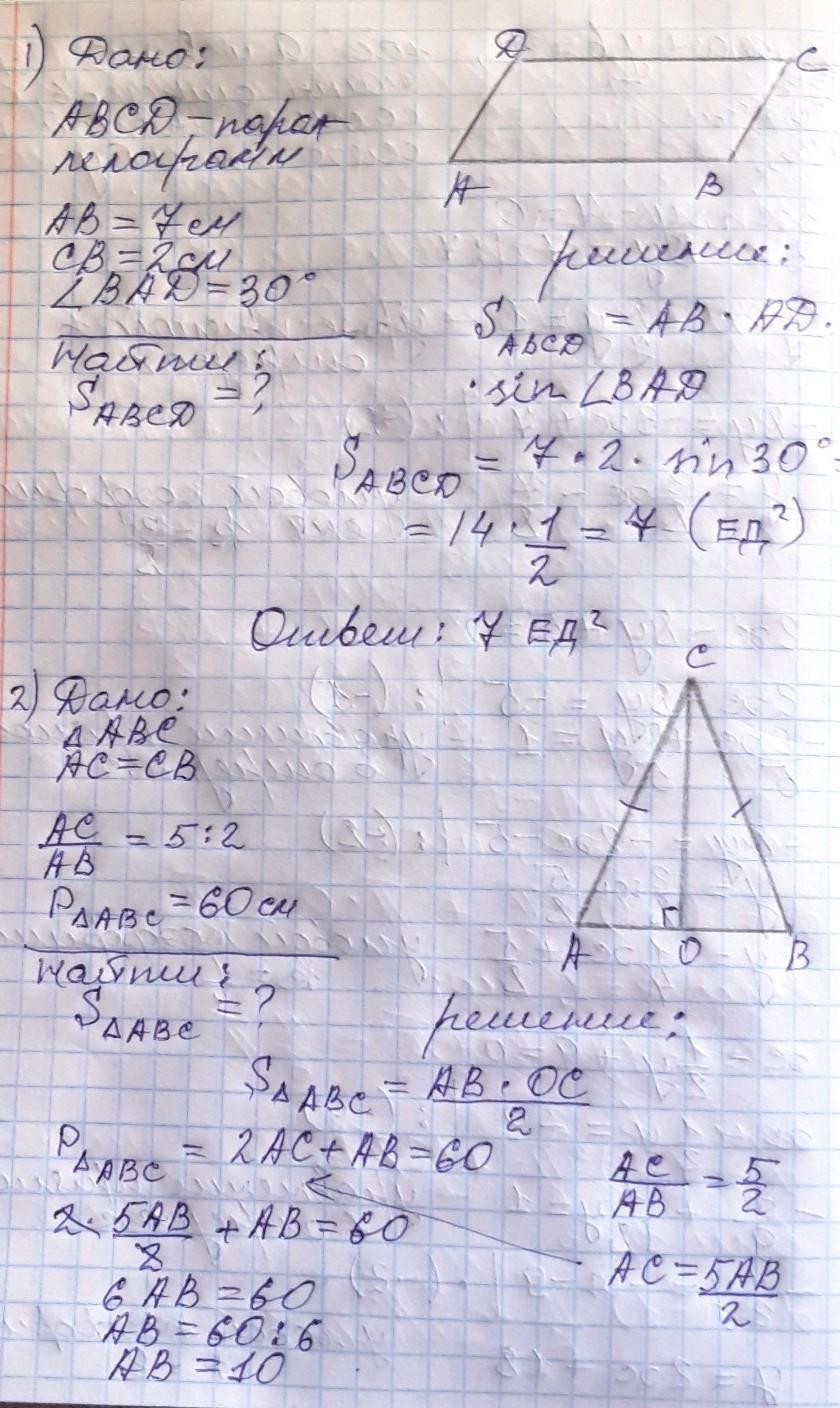 1) Дано:
D C
ABCD - парал
лелограмм
A B
AB = 7см
CB = 2см
∠BAD = 30°
Найти:
S ABCD = ?
решение:
S ABCD = AB · AD ·
· sin ∠BAD
S ABCD = 7 · 2 · sin 30° =
= 14 · 1/2 = 7 (ЕД²)
Ответ: 7 ЕД²
2) Дано:
△ABC
AC = CB
AC/AB = 5:2
P△ABC = 60 см
C
A O B
Найти:
S△ABC = ?
решение:
S△ABC = AB · OC/2
P△ABC = 2AC + AB = 60
AC/AB = 5/2
2 · 5AB/2 + AB = 60
AC = 5AB/2
6AB = 60
AB = 60:6
AB = 10